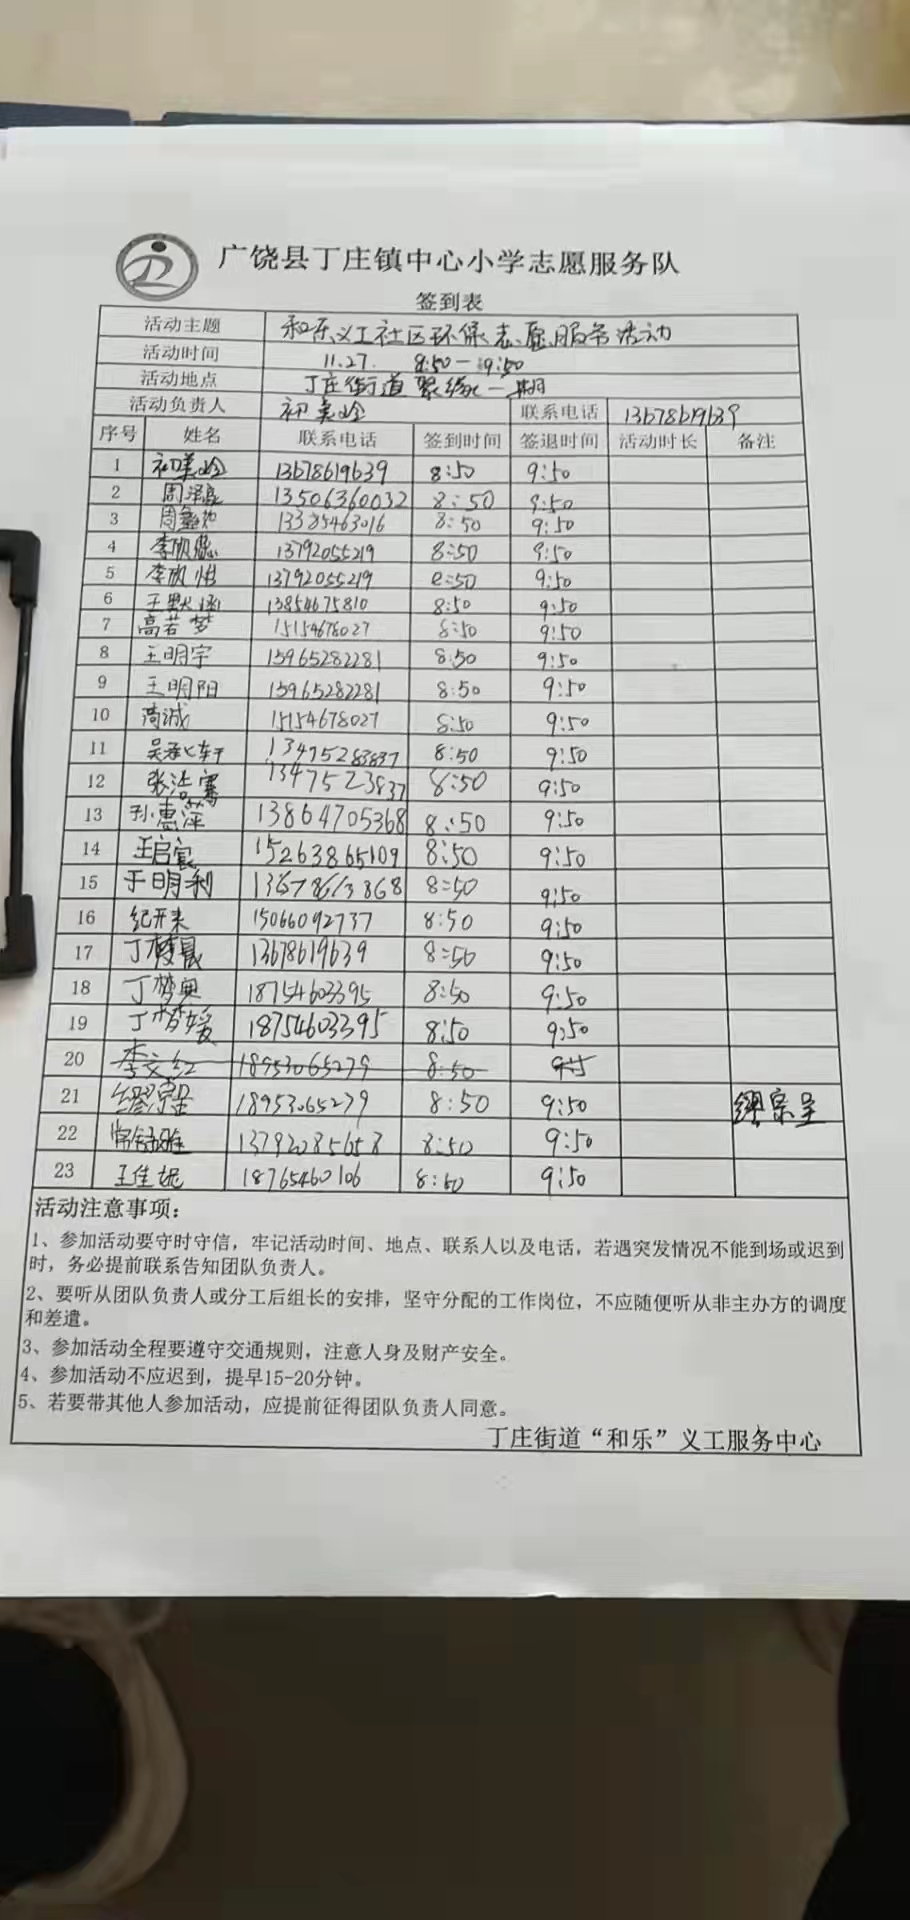 广饶县丁庄镇中心小学志愿服务队
签到表
活动主题 和乐义工社区环保志愿服务活动
活动时间 11.27. 8:50-9:50
活动地点 丁庄街道聚缘一期
活动负责人 初美玲 联系电话 13678619639
序号 姓名 联系电话 签到时间 签退时间 活动时长 备注
1 初美玲 13678619639 8:50 9:50
2 周泽良 13506360032 8:50 9:50
3 13385463016 8:50 9:50
4 李欣慧 13792055219 8:50 9:50
5 李欣怡 13792055219 8:50 9:50
6 王默涵 13854675810 8:50 9:50
7 高若梦 15154678027 8:50 9:50
8 王明宇 15965282281 8:50 9:50
9 王明阳 15965282281 8:50 9:50
10 高诚 15154678027 8:50 9:50
11 13475283837 8:50 9:50
12 张洁 1347523837 8:50 9:50
13 孙惠萍 13864705368 8:50 9:50
14 王启宸 15263865109 8:50 9:50
15 于明利 13678613868 8:50 9:50
16 纪开来 15066092737 8:50 9:50
17 丁梭晟 13678619639 8:50 9:50
18 丁梦奥 18754603395 8:50 9:50
19 丁梦媛 18754603395 8:50 9:50
20 李文红 18953065279 8:50
21 缪宗呈 18953065279 8:50 9:50 缪宗呈
22 常钰雅 13792085658 8:50 9:50
23 王佳妮 18765460106 8:50 9:50
活动注意事项：
1、参加活动要守时守信，牢记活动时间、地点、联系人以及电话，若遇突发情况不能到场或迟到
时，务必提前联系告知团队负责人。
2、要听从团队负责人或分工后组长的安排，坚守分配的工作岗位，不应随便听从非主办方的调度
和差遣。
3、参加活动全程要遵守交通规则，注意人身及财产安全。
4、参加活动不应迟到，提早15-20分钟。
5、若要带其他人参加活动，应提前征得团队负责人同意。
丁庄街道“和乐”义工服务中心